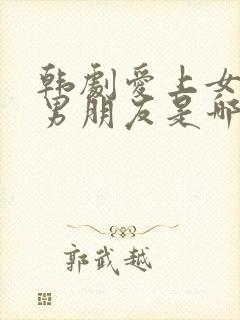 韩剧爱上女
男朋友是哪
郭武越